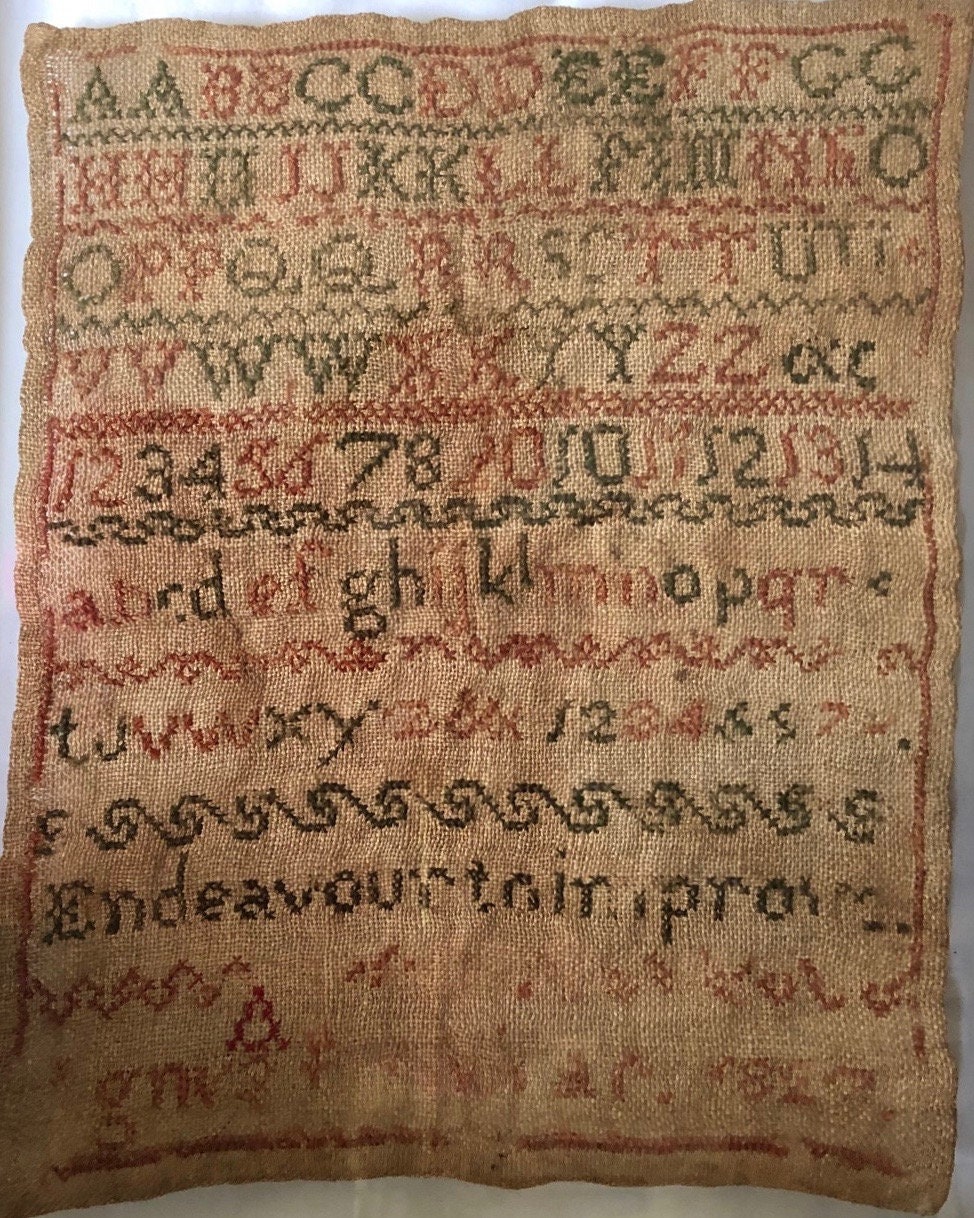 A A B B C C D D E E F F G G
H H I I J J K K L L M M N N O
O P P Q Q R R S S T T U U
V V W W X X Y Y Z Z &
1 2 3 4 5 6 7 8 9 0 10 11 12 13 14
a b c d e f g h i j k l m n o p q r s
t u v w x y z & 1 2 3 4 5 6 7
Endeavour to improve
A